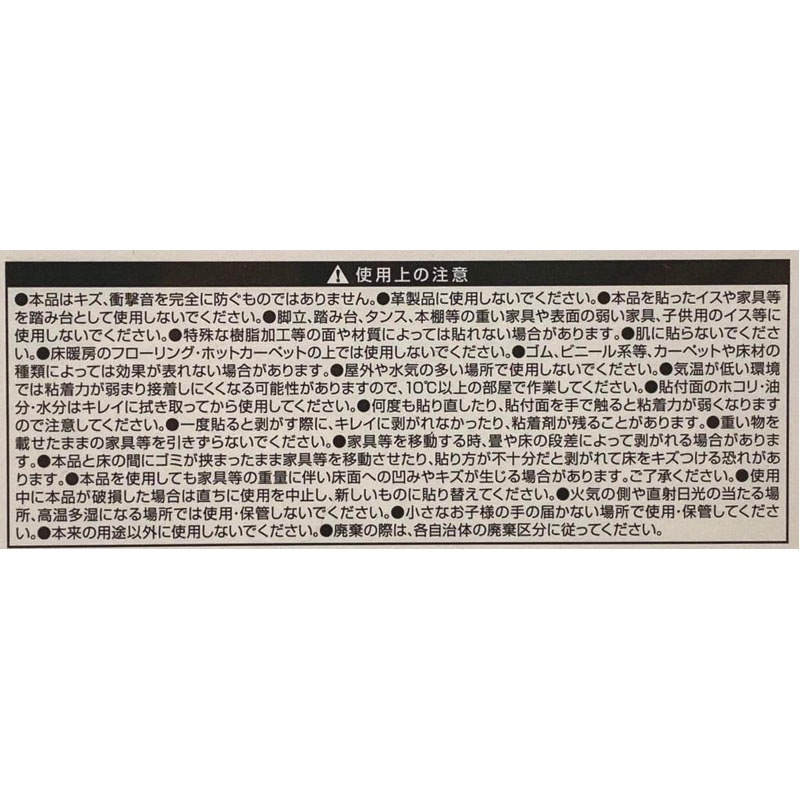 ⚠使用上の注意
●本品はキズ、衝撃音を完全に防ぐものではありません。●革製品に使用しないでください。●本品を貼ったイスや家具等
を踏み台として使用しないでください。●脚立、踏み台、タンス、本棚等の重い家具や表面の弱い家具、子供用のイス等に
使用しないでください。●特殊な樹脂加工等の面や材質によっては貼れない場合があります。●肌に貼らないでくださ
い。●床暖房のフローリング・ホットカーペットの上では使用しないでください。●ゴム、ビニール系等、カーペットや床材の
種類によっては効果が表れない場合があります。●屋外や水気の多い場所で使用しないでください。●気温が低い環境
では粘着力が弱まり接着しにくくなる可能性がありますので、10℃以上の部屋で作業してください。●貼付面のホコリ・油
分・水分はキレイに拭き取ってから使用してください。●何度も貼り直したり、貼付面を手で触ると粘着力が弱くなります
ので注意してください。●一度貼ると剥がす際に、キレイに剥がれなかったり、粘着剤が残ることがあります。●重い物を
載せたままの家具等を引きずらないでください。●家具等を移動する時、畳や床の段差によって剥がれる場合がありま
す。●本品と床の間にゴミが挟まったまま家具等を移動させたり、貼り方が不十分だと剥がれて床をキズつける恐れがあ
ります。●本品を使用しても家具等の重量に伴い床面への凹みやキズが生じる場合があります。ご了承ください。●使用
中に本品が破損した場合は直ちに使用を中止し、新しいものに貼り替えてください。●火気の側や直射日光の当たる場
所、高温多湿になる場所では使用・保管しないでください。●小さなお子様の手の届かない場所で使用・保管してくださ
い。●本来の用途以外に使用しないでください。●廃棄の際は、各自治体の廃棄区分に従ってください。